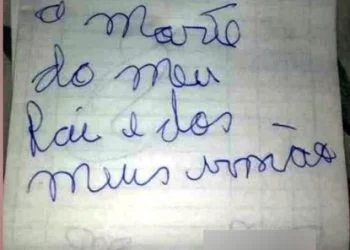 a Morte
do meu
Pai e dos
meus irmãos